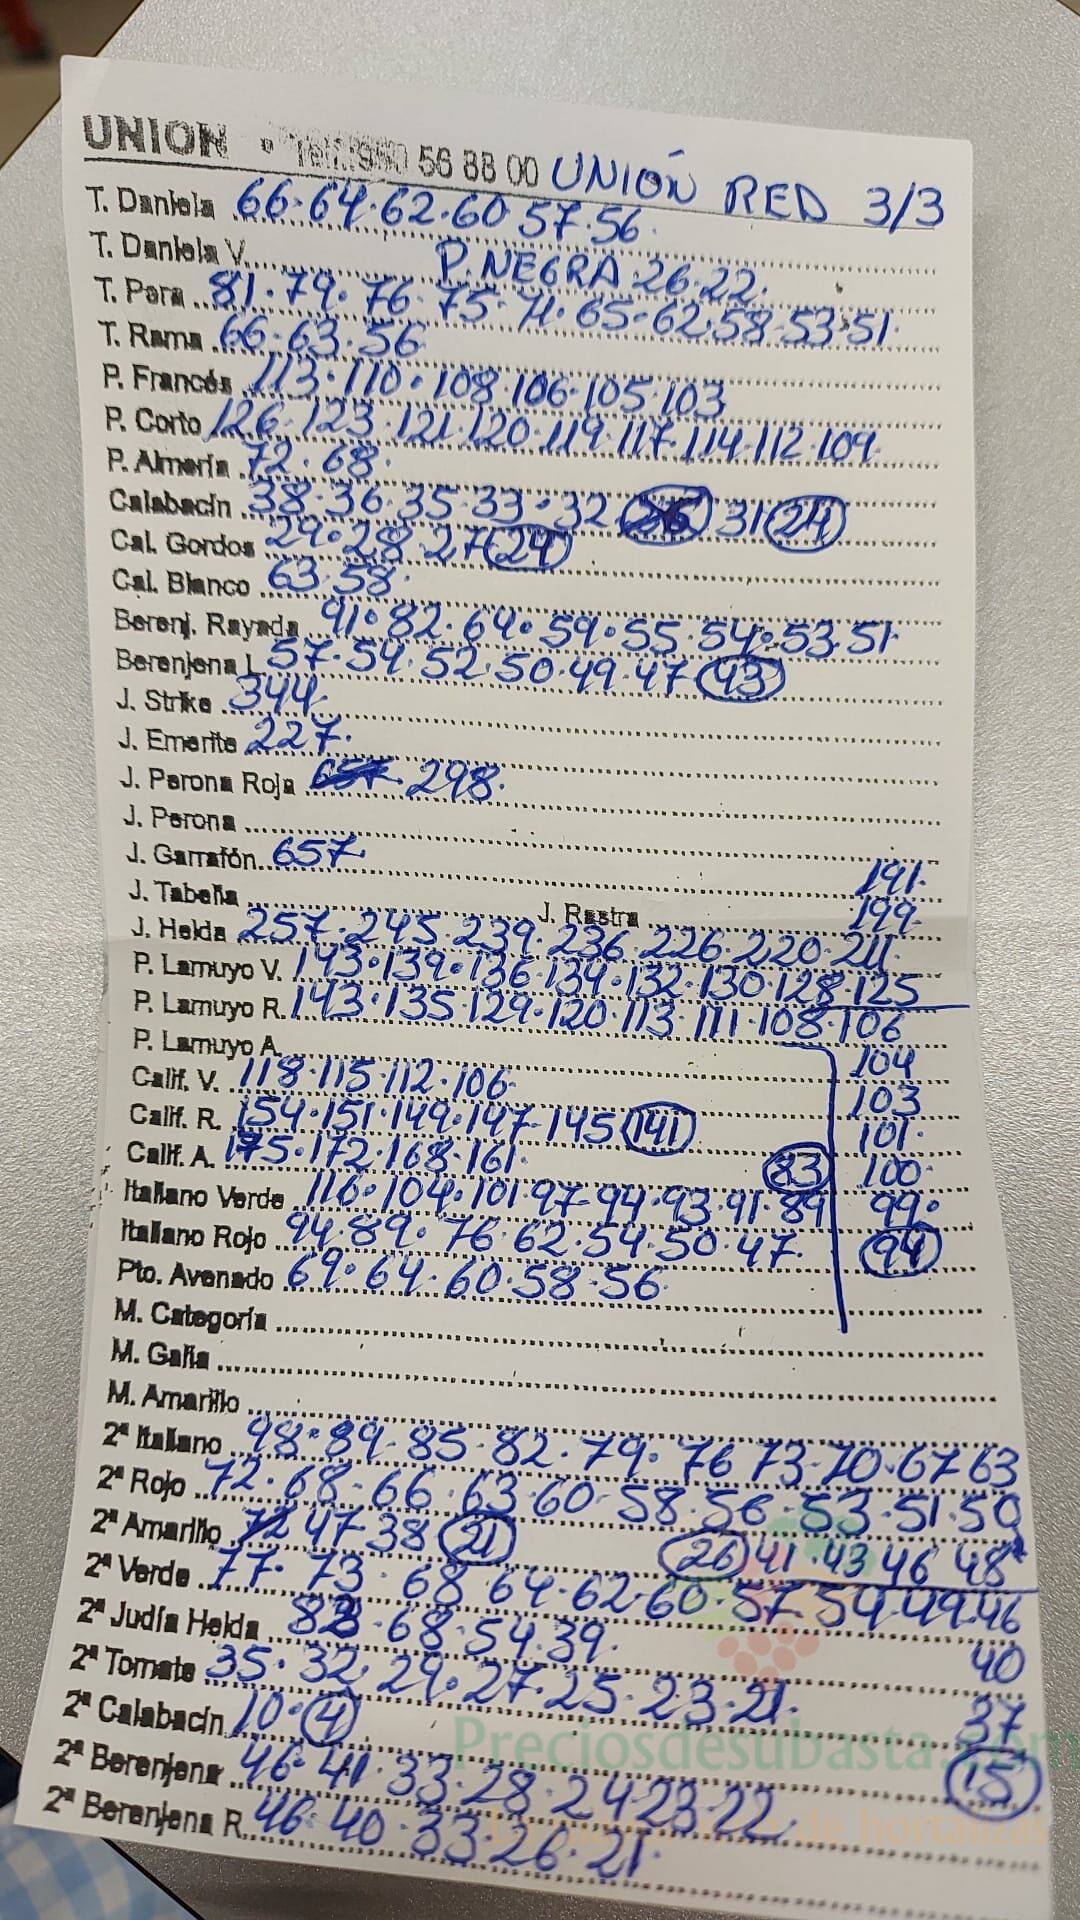 UNION · Telf. 950 56 88 00 UNIÓN RED 3/3
T. Daniela 66·64·62·60·57·56·
T. Daniela V. P. NEGRA 26·22·
T. Pera 81·79·76·75·71·65·62·58·53·51·
T. Rama 66·63·56
P. Francés 113·110·108·106·105·103
P. Corto 126·123·121·120·119·117·114·112·109
P. Almería 72·68·
Calabacín 38·36·35·33·32 31 24
Cal. Gordos 29·28·27 24
Cal. Blanco 63·58·
Berenj. Rayada 91·82·64·59·55·54·53·51·
Berenjena L. 57·54·52·50·49·47 43
J. Strike 344·
J. Emerite 227·
J. Perona Roja 657 298·
J. Perona
J. Garrafón 657· 191·
J. Tabeña J. Rastra 199·
J. Helda 257·245·239·236·226·220·211·
P. Lamuyo V. 143·139·136·134·132·130·128·125
P. Lamuyo R. 143·135·129·120·113·111·108·106
P. Lamuyo A. 104
Calif. V. 118·115·112·106· 103
Calif. R. 154·151·149·147·145 141 101·
Calif. A. 175·172·168·161· 83 100·
Italiano Verde 116·104·101·97·94·93·91·89 99·
Italiano Rojo 94·89·76·62·54·50·47· 94
Pto. Avenado 69·64·60·58·56·
M. Categoría
M. Galia
M. Amarillo
2ª Italiano 98·89·85·82·79·76·73·70·67·63
2ª Rojo 72·68·66·63·60·58·56·53·51·50
2ª Amarillo 72 47·38 21 26 41·43 46 48
2ª Verde 77·73·68·64·62·60·57·54·49·46
2ª Judía Helda 68·54·39· 40
2ª Tomate 35·32·29·27·25·23·21· 37
2ª Calabacín 10· 4 15
2ª Berenjena 46·41·33·28·24·23·22
2ª Berenjena R. 46·40·33·26·21·
Preciosdesubasta.com
de hortalizas